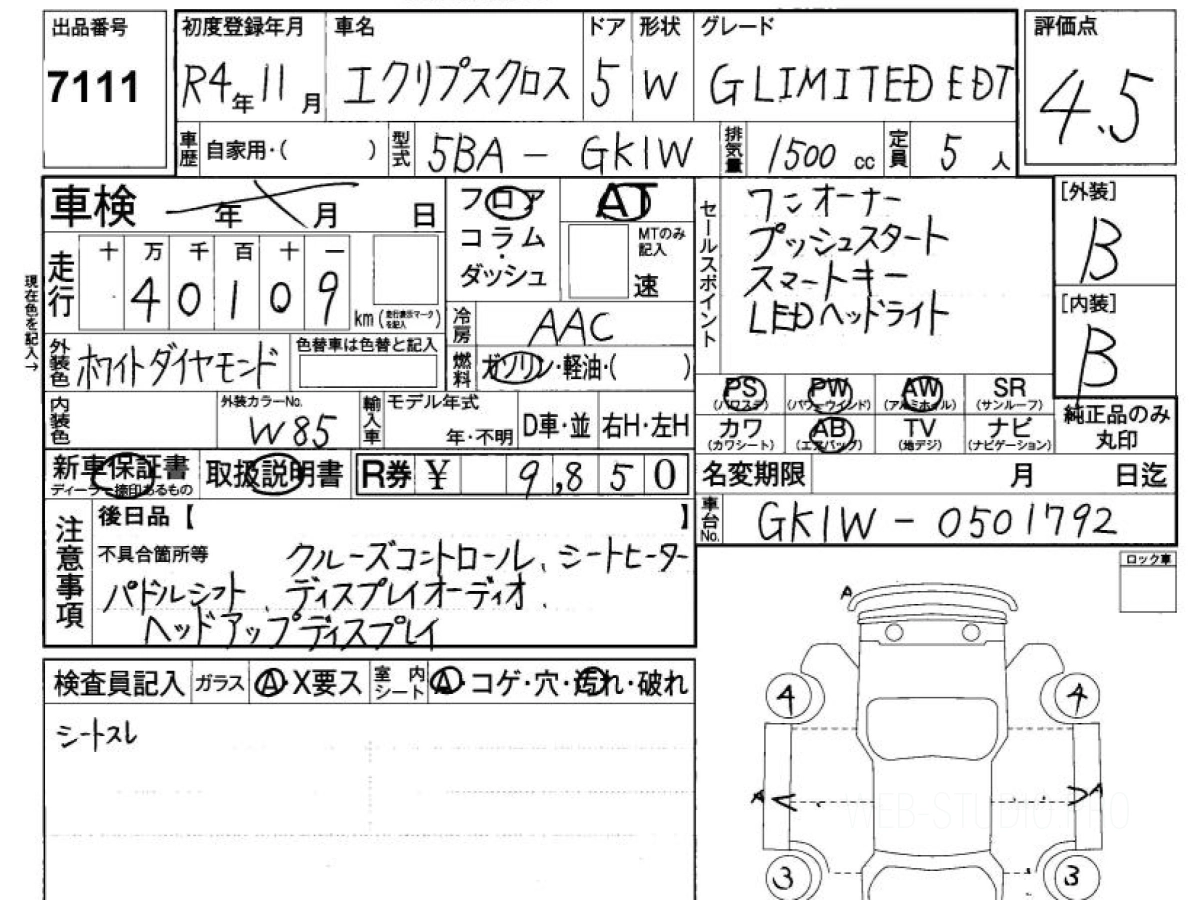 出品番号 初度登録年月 車名 ドア 形状 グレード 評価点
7111 R4年11月 エクリプスクロス 5 W G LIMITED EDT 4.5
車歴 自家用・( ) 型式 5BA - GK1W 排気量 1500 cc 定員 5 人
車検 年 月 日
フロア AT
コラム
ダッシュ
MTのみ記入
速
セールスポイント
ワンオーナー
プッシュスタート
スマートキー
LEDヘッドライト
[外装]
B
[内装]
B
現在色を記入→
走行 十 万 千 百 十 一
4 0 1 0 9 km (走行表示マークを記入)
冷房 AAC
外装色 ホワイトダイヤモンド 色替車は色替と記入
燃料 ガソリン・軽油・( )
PS PW AW SR
(パワステ) (パワーウインド) (アルミホイル) (サンルーフ)
カワ AB TV ナビ
(カワシート) (エアバッグ) (地デジ) (ナビゲーション)
純正品のみ
丸印
内装色 外装カラーNo. W85 輸入車 モデル年式 年・不明 D車・並 右H・左H
新車保証書 取扱説明書 R券 ¥ 9,850
ディーラー捺印あるもの
名変期限 月 日迄
車台No. GK1W - 0501792
注意事項
後日品【 】
不具合箇所等 クルーズコントロール、シートヒーター
パドルシフト、ディスプレイオーディオ、
ヘッドアップディスプレイ
ロック車
検査員記入 ガラス A・X要ス 室内シート A・コゲ・穴・汚れ・破れ
シートスレ
A
4 4
A A
WEB-STUDIO.PRO
3 3